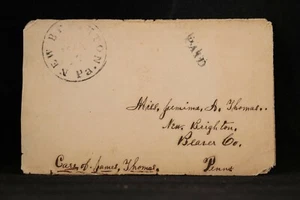 NEW BRIGHTON, Pa
Miss, Jemima, A. Thomas.
New Brighton,
Beaver Co.
Care, of James, Thomas, Penna